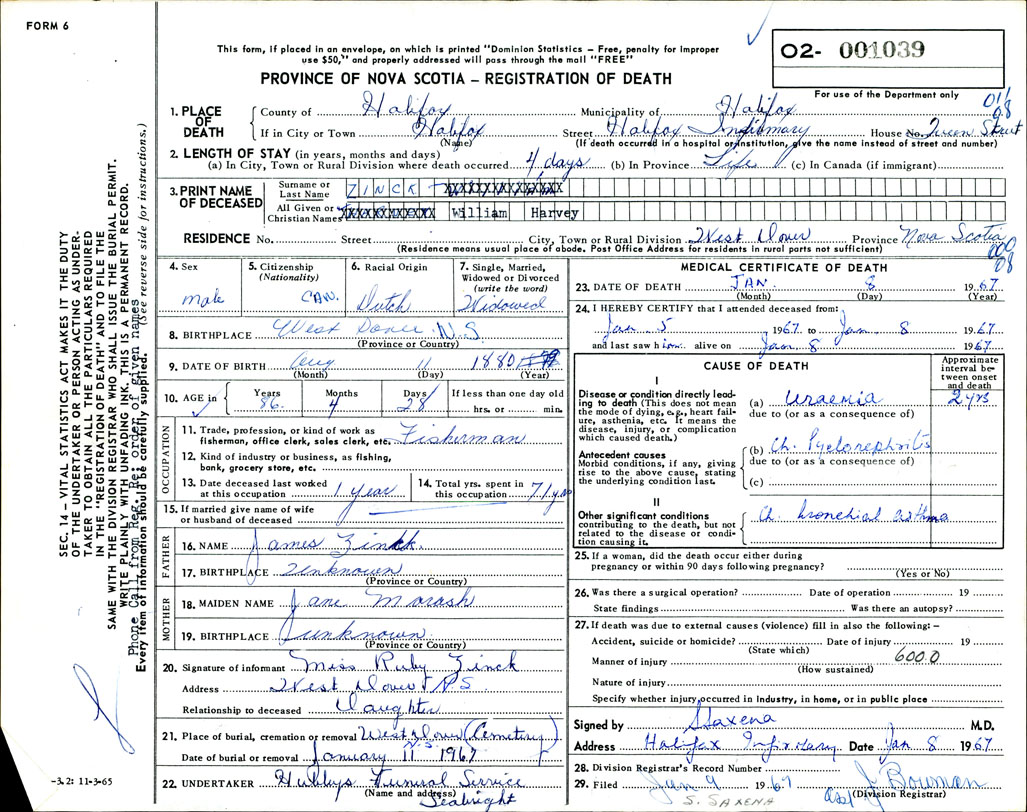 FORM 6
This form, if placed in an envelope, on which is printed "Dominion Statistics – Free, penalty for improper
use $50," and properly addressed will pass through the mail "FREE"
PROVINCE OF NOVA SCOTIA – REGISTRATION OF DEATH
O2- 001039
For use of the Department only
1. PLACE OF DEATH
County of Halifax Municipality of Halifax
If in City or Town Halifax Street Halifax Infirmary House No. Queen Street
(Name) (If death occurred in a hospital or institution, give the name instead of street and number)
2. LENGTH OF STAY (in years, months and days)
(a) In City, Town or Rural Division where death occurred 4 days (b) In Province Life (c) In Canada (if immigrant)
3. PRINT NAME OF DECEASED
Surname or Last Name ZINCK
All Given or Christian Names William Harvey
RESIDENCE No. Street City, Town or Rural Division West Dover Province Nova Scotia
(Residence means usual place of abode. Post Office Address for residents in rural parts not sufficient)
000
08
4. Sex male
5. Citizenship (Nationality) CAN.
6. Racial Origin Dutch
7. Single, Married, Widowed or Divorced (write the word) Widowed
8. BIRTHPLACE West Dover N.S
(Province or Country)
9. DATE OF BIRTH Aug 11 1880
(Month) (Day) (Year)
10. AGE in Years 86 Months 4 Days 28 If less than one day old hrs. or min.
OCCUPATION
11. Trade, profession, or kind of work as fisherman, office clerk, sales clerk, etc. Fisherman
12. Kind of industry or business, as fishing, bank, grocery store, etc.
13. Date deceased last worked at this occupation 1 year
14. Total yrs. spent in this occupation 71 yrs
15. If married give name of wife or husband of deceased
FATHER
16. NAME James Zinck
17. BIRTHPLACE Unknown
(Province or Country)
MOTHER
18. MAIDEN NAME Jane Morash
19. BIRTHPLACE unknown
(Province or Country)
20. Signature of informant Miss Ruby Zinck
Address West Dover N.S.
Relationship to deceased Daughter
21. Place of burial, cremation or removal West Dover (Cemetery) N.S.
Date of burial or removal January 11 1967
22. UNDERTAKER Hubleys Funeral Service
(Name and address) Seabright
MEDICAL CERTIFICATE OF DEATH
23. DATE OF DEATH JAN. 8 1967
(Month) (Day) (Year)
24. I HEREBY CERTIFY that I attended deceased from:
Jan 5 1967 to Jan. 8 1967
and last saw him alive on Jan. 8 1967
CAUSE OF DEATH
Approximate interval between onset and death
I
Disease or condition directly leading to death (This does not mean the mode of dying, e.g., heart failure, asthenia, etc. It means the disease, injury, or complication which caused death.)
(a) Uraemia 2 yrs
due to (or as a consequence of)
Antecedent causes
Morbid conditions, if any, giving rise to the above cause, stating the underlying condition last.
(b) Ch. Pyelonephritis
due to (or as a consequence of)
(c)
II
Other significant conditions
contributing to the death, but not related to the disease or condition causing it.
Ch. bronchial asthma
25. If a woman, did the death occur either during
pregnancy or within 90 days following pregnancy?
(Yes or No)
26. Was there a surgical operation? Date of operation 19
State findings Was there an autopsy?
27. If death was due to external causes (violence) fill in also the following: –
Accident, suicide or homicide? Date of injury 19
(State which)
Manner of injury 600.0
(How sustained)
Nature of injury
Specify whether injury occurred in industry, in home, or in public place
Signed by SSaxena M.D.
Address Halifax Infirmary Date Jan 8 1967
28. Division Registrar's Record Number
29. Filed Jan 9 1967 J. Bowman
S. SAXENA (Division Registrar)
SEC. 14 – VITAL STATISTICS ACT MAKES IT THE DUTY
OF THE UNDERTAKER OR PERSON ACTING AS UNDER-
TAKER TO OBTAIN ALL THE PARTICULARS REQUIRED
IN THE "REGISTRATION OF DEATH" AND TO FILE THE
SAME WITH THE DIVISION REGISTRAR WHO SHALL ISSUE THE BURIAL PERMIT.
WRITE PLAINLY WITH UNFADING INK, THIS IS A PERMANENT RECORD.
Phone Call from Reg. Re: order of given names
Every item of information should be carefully supplied. (See reverse side for instructions.)
11-3-65